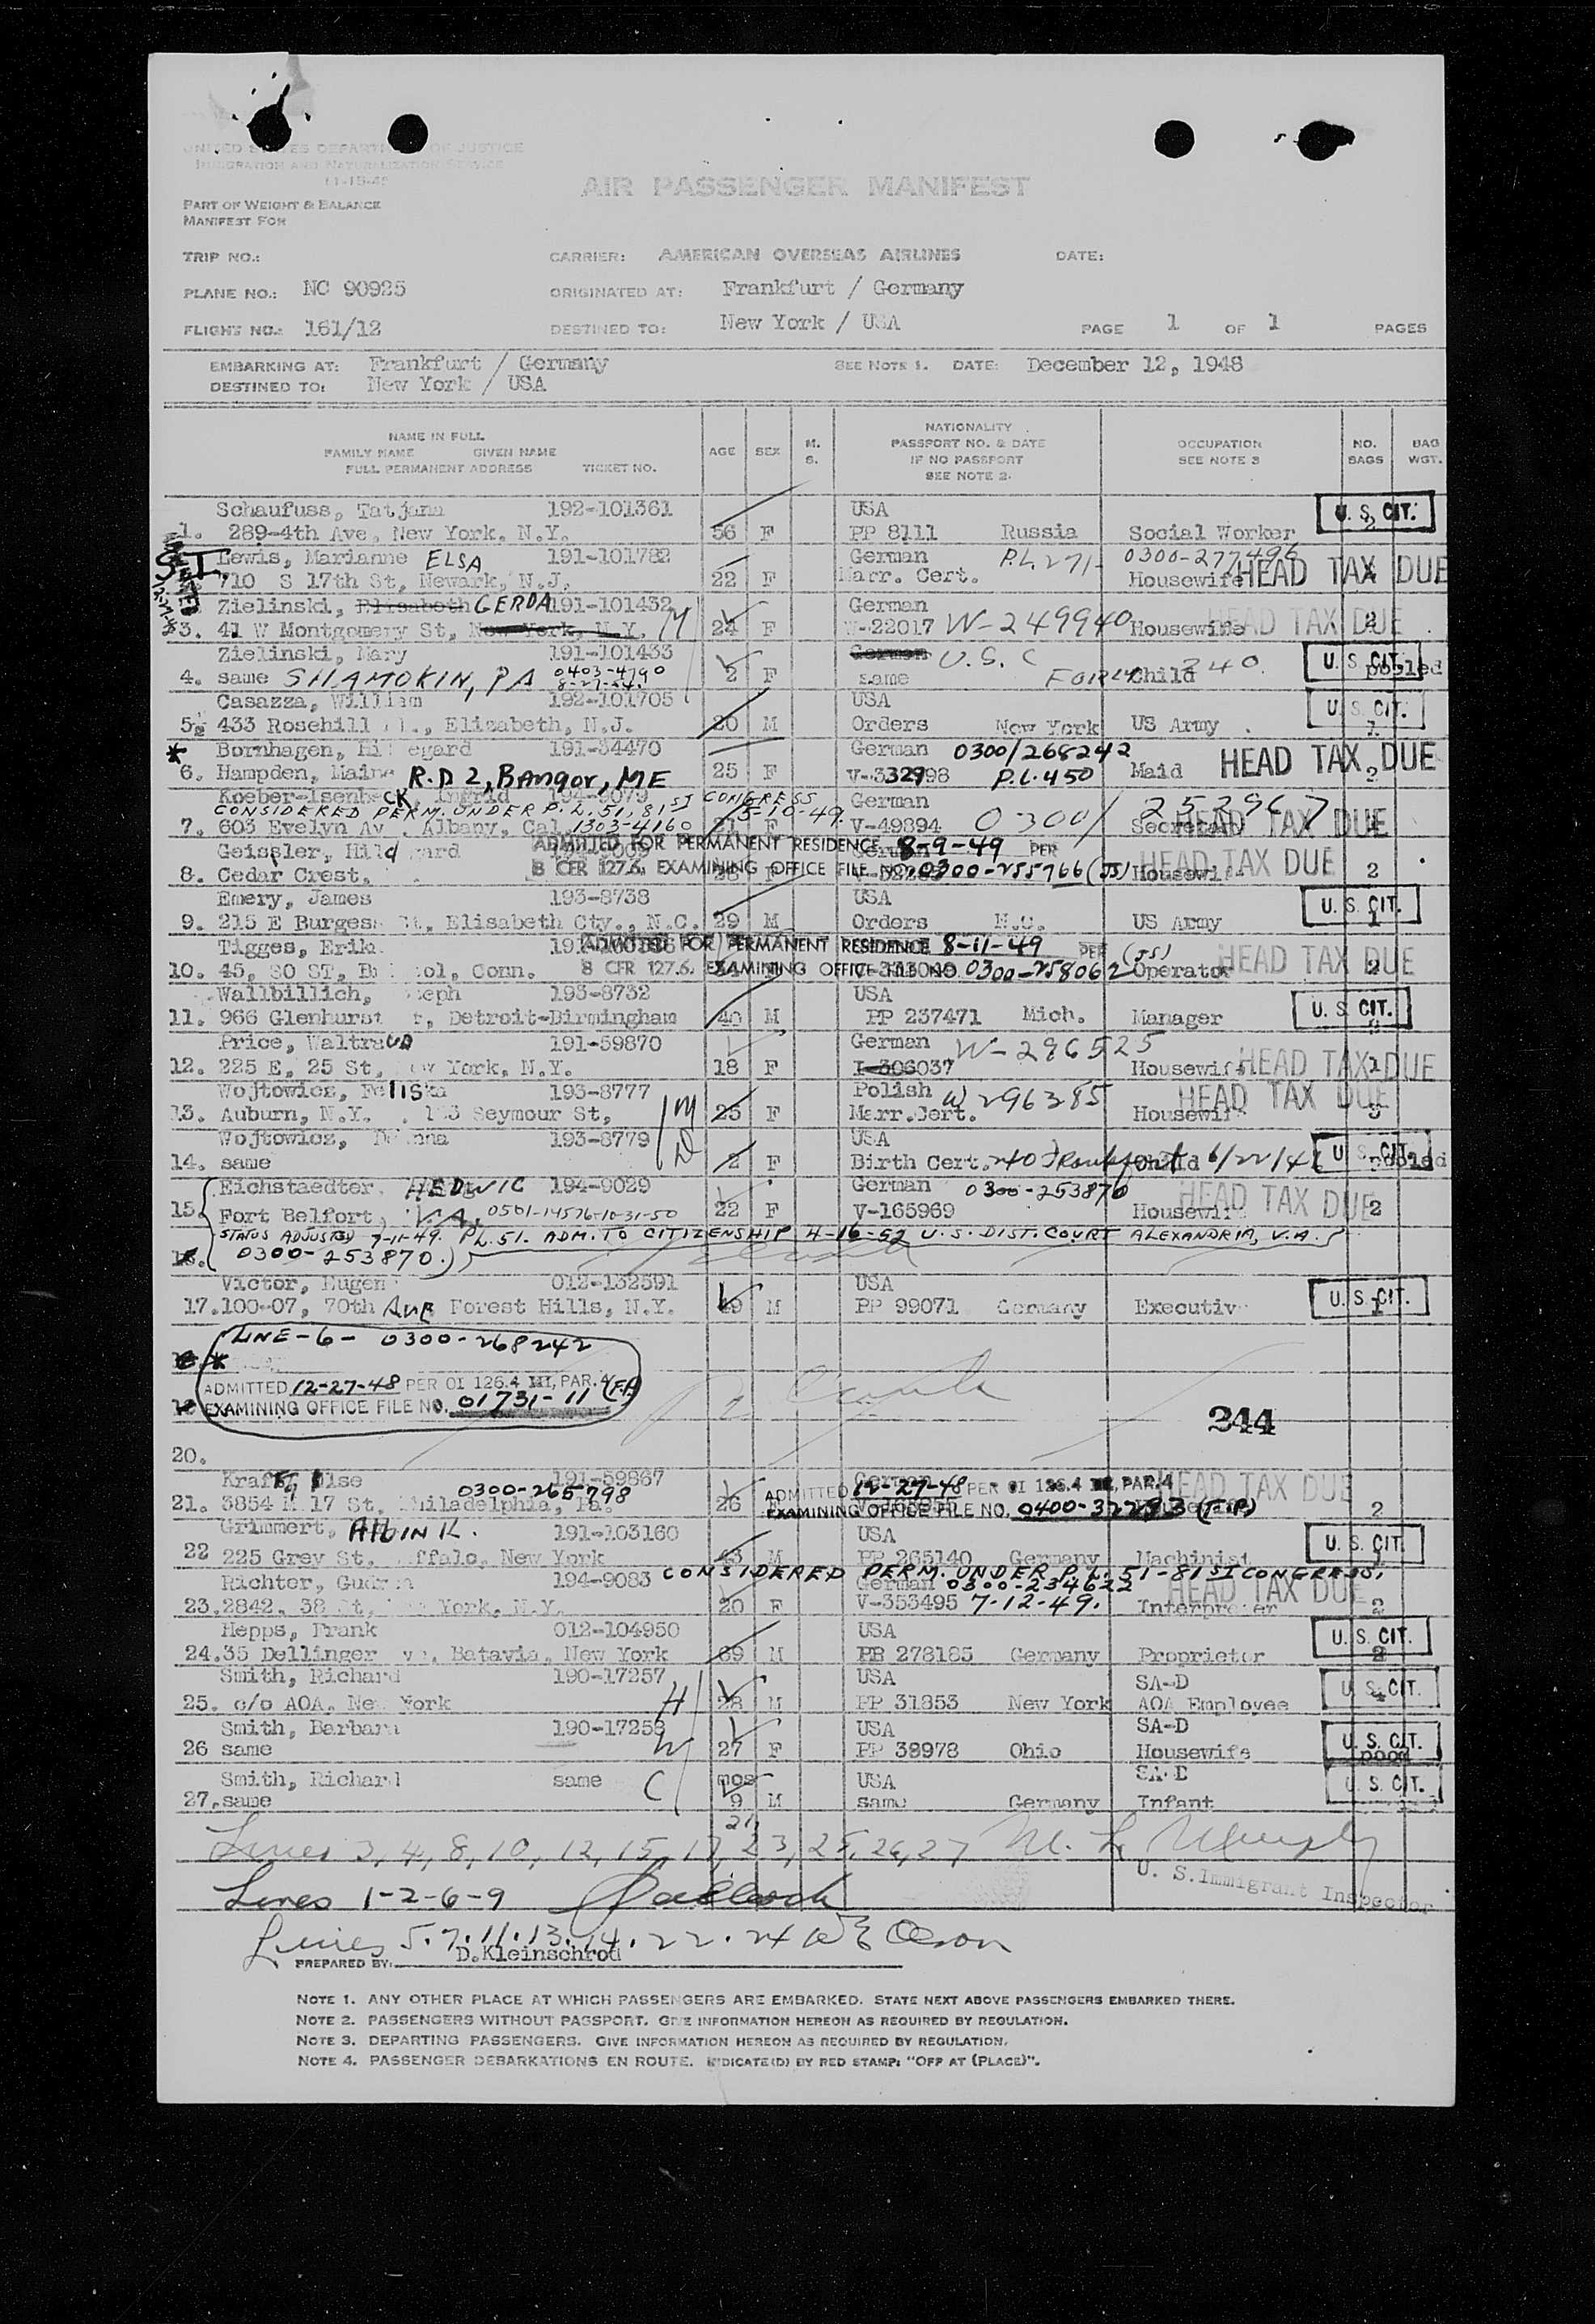 UNITED STATES DEPARTMENT OF JUSTICE
IMMIGRATION AND NATURALIZATION SERVICE
AIR PASSENGER MANIFEST
PART OF WEIGHT & BALANCE
MANIFEST FOR
TRIP NO.: CARRIER: AMERICAN OVERSEAS AIRLINES DATE:
PLANE NO.: NC 90925 ORIGINATED AT: Frankfurt / Germany
FLIGHT NO.: 161/12 DESTINED TO: New York / USA PAGE 1 OF 1 PAGES
EMBARKING AT: Frankfurt / Germany SEE NOTE 1. DATE: December 12, 1948
DESTINED TO: New York / USA
NAME IN FULL
FAMILY NAME GIVEN NAME
FULL PERMANENT ADDRESS TICKET NO.
AGE SEX M. S.
NATIONALITY
PASSPORT NO. & DATE
IF NO PASSPORT
SEE NOTE 2.
OCCUPATION
SEE NOTE 3
NO. BAGS
BAG WGT.
Schaufuss, Tatjana 192-101361 USA U. S. CIT.
1. 289-4th Ave, New York, N.Y. 56 F PP 8111 Russia Social Worker
Lewis, Marianne ELSA 191-101782 German P.L. 271- 0300-277496
710 S 17th St, Newark, N.J. 22 F Marr. Cert. Housewife HEAD TAX DUE
Zielinski, Elisabeth GERDA 191-101432 German
3. 41 W Montgomery St, New York, N.Y. M 24 F V-22017 W-249940 Housewife HEAD TAX DUE 2
Zielinski, Mary 191-101433 German U.S.C U. S. CIT.
4. same SHAMOKIN, PA 0403-4790 2 F same Child 240 pooled
Casazza, William 192-101705 USA U. S. CIT.
5. 433 Rosehill Pl., Elizabeth, N.J. 20 M Orders New York US Army
* Bornhagen, Hildegard 191-54470 German 0300/268242
6. Hampden, Maine R.D 2, Bangor, ME 25 F P.L. 450 Maid HEAD TAX DUE 2
Koeber-IsenbeCK, Ingrid 191-9079 German
CONSIDERED PERM. UNDER P.L. 51, 81ST CONGRESS 5-10-49.
7. 603 Evelyn Av., Albany, Cal 1303-4160 21 F V-49894 0300/252967 Secretary HEAD TAX DUE
Geissler, Hildegard ADMITTED FOR PERMANENT RESIDENCE 8-9-49 PER
8. Cedar Crest, 8 CFR 127.6. EXAMINING OFFICE FILE NO. 0300-255766 (JS) Housewife HEAD TAX DUE 2
Emery, James 193-8738 USA U. S. CIT.
9. 215 E Burgess St, Elisabeth Cty., N.C. 29 M Orders N.C. US Army 1
Tigges, Erika ADMITTED FOR PERMANENT RESIDENCE 8-11-49 PER (JS)
10. 45, 80 ST, Bristol, Conn. 8 CFR 127.6. EXAMINING OFFICE FILE NO. 0300-258062 Operator HEAD TAX DUE 2
Wallbillich, Joseph 193-8732 USA U. S. CIT.
11. 966 Glenhurst, Detroit-Birmingham 40 M PP 237471 Mich. Manager
Price, WaltraUD 191-59870 German W-296525
12. 225 E. 25 St, New York, N.Y. 18 F I-306037 Housewife HEAD TAX DUE 1
Wojtowicz, Feliska 193-8777 Polish W 296385
13. Auburn, N.Y. Seymour St, M 25 F Marr. Cert. Housewife HEAD TAX DUE
Wojtowicz, 193-8779 D USA
14. same 2 F Birth Cert. 240 Frankfurt Child U. S. CIT. pooled
Eichstaedter, HEDWIG 194-9029 German 0300-253870
15. Fort Belfort, VA, 0501-14576-10-31-50 22 F V-165969 Housewife HEAD TAX DUE 2
STATUS ADJUSTED 7-11-49. P.L. 51. ADM. TO CITIZENSHIP 4-16-52 U.S. DIST. COURT ALEXANDRIA, V.A.
16. 0300-253870.)
Victor, Eugen 012-132591 USA U. S. CIT.
17. 100-07, 70th AVE Forest Hills, N.Y. 49 M PP 99071 Germany Executive 1
LINE-6- 0300-268242
*
ADMITTED 12-27-48 PER OI 126.4 III, PAR. 4 (FP)
EXAMINING OFFICE FILE NO. 01731-11
244
20.
Kraft, Ilse 191-59867 German
0300-265798 ADMITTED 12-27-48 PER OI 126.4 III, PAR. 4
21. 3854 N 17 St, Philadelphia, Pa. 26 EXAMINING OFFICE FILE NO. 0400-32293 (FP) HEAD TAX DUE 2
Grimmert, Albin K. 191-103160 USA U. S. CIT.
22 225 Grey St. Buffalo, New York 43 M PP 265140 Germany Machinist 1
Richter, Gudrun 194-9083 CONSIDERED PERM. UNDER P.L. 51-81ST CONGRESS.
German 0300-234622
23. 2842, 38 St, New York, N.Y. 20 F V-353495 7-12-49. Interpreter HEAD TAX DUE 2
Hepps, Frank 012-104950 USA U. S. CIT.
24. 35 Dellinger Ave, Batavia, New York 69 M PP 278185 Germany Proprietor 2
Smith, Richard 190-17257 USA SA-D
25. c/o AOA, New York H 28 M PP 31853 New York AOA Employee U. S. CIT.
Smith, Barbara 190-17258 USA SA-D
26 same W 27 F PP 38978 Ohio Housewife U. S. CIT.
Smith, Richard same C mos USA SA-D
27. same 9 M same Germany Infant U. S. CIT.
21,
Lines 3, 4, 8, 10, 12, 15, 17, 23, 25, 26, 27 M. L. Murphy
U. S. Immigrant Inspector
Lines 1-2-6-9
Lines 5.7.11.13.14.22.24 Olson
PREPARED BY: D. Kleinschrod
NOTE 1. ANY OTHER PLACE AT WHICH PASSENGERS ARE EMBARKED. STATE NEXT ABOVE PASSENGERS EMBARKED THERE.
NOTE 2. PASSENGERS WITHOUT PASSPORT. GIVE INFORMATION HEREON AS REQUIRED BY REGULATION.
NOTE 3. DEPARTING PASSENGERS. GIVE INFORMATION HEREON AS REQUIRED BY REGULATION.
NOTE 4. PASSENGER DEBARKATIONS EN ROUTE. INDICATE(D) BY RED STAMP: "OFF AT (PLACE)".